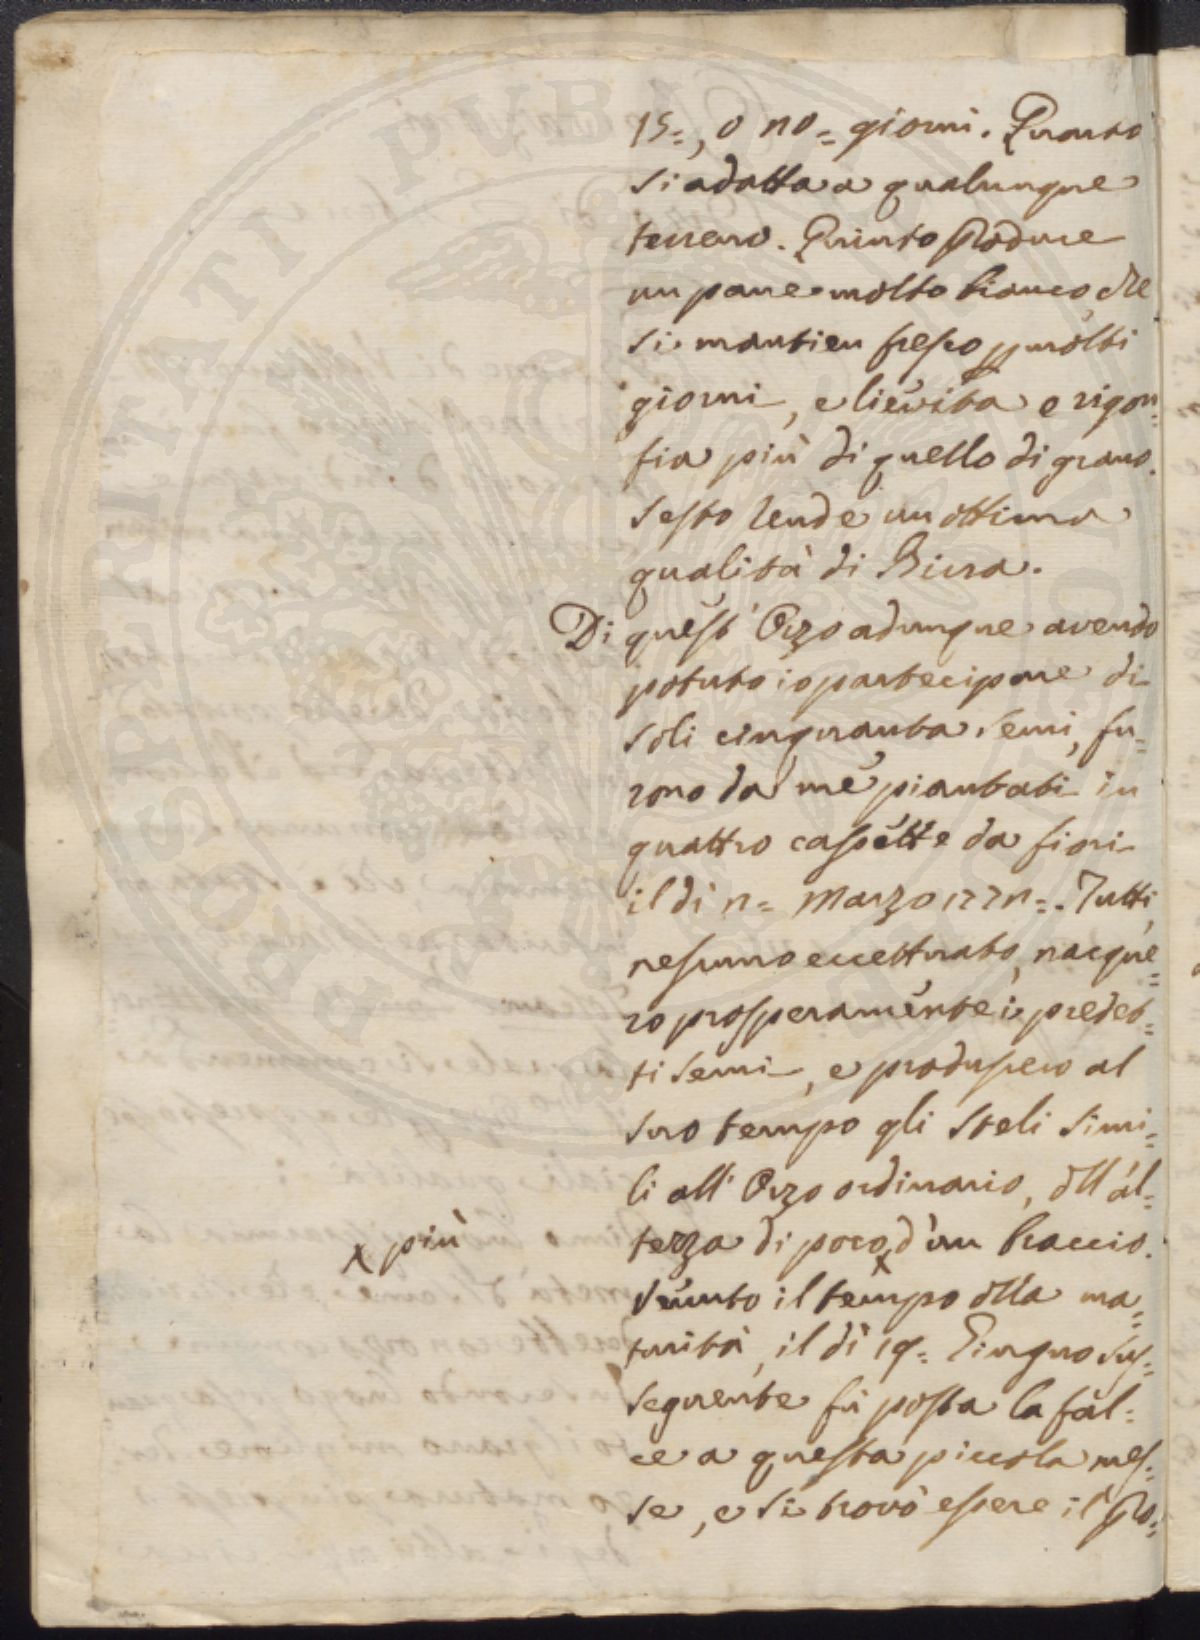 15=, o 20= giorni. Quarto
si adatta a qualunque
terreno. Quinto produce
un pane molto bianco, che
si mantien fresco p molti
giorni, e lievita e rigon=
fia più di quello di grano.
Sesto rende un ottima
qualità di Birra.
Di quest' Orzo adunque avendo
potuto io partecipare di
soli cinquanta semi, fu=
rono da me piantati in
quattro cassette da fiori
il dì 2= Marzo 1772=. Tutti,
nessuno eccettuato, nacque=
ro prosperamente i predet=
ti semi, e produssero al
suo tempo gli steli simi=
li all' Orzo ordinario, dll'al=
tezza di poco x d'un braccio.
x più
Venuto il tempo dlla ma=
turità, il dì 19= Giugno sus=
seguente fù posta la fal=
ce a questa piccola mes=
se, e si trovò essere il Pro=
PROSPERITATI PUBLICAE